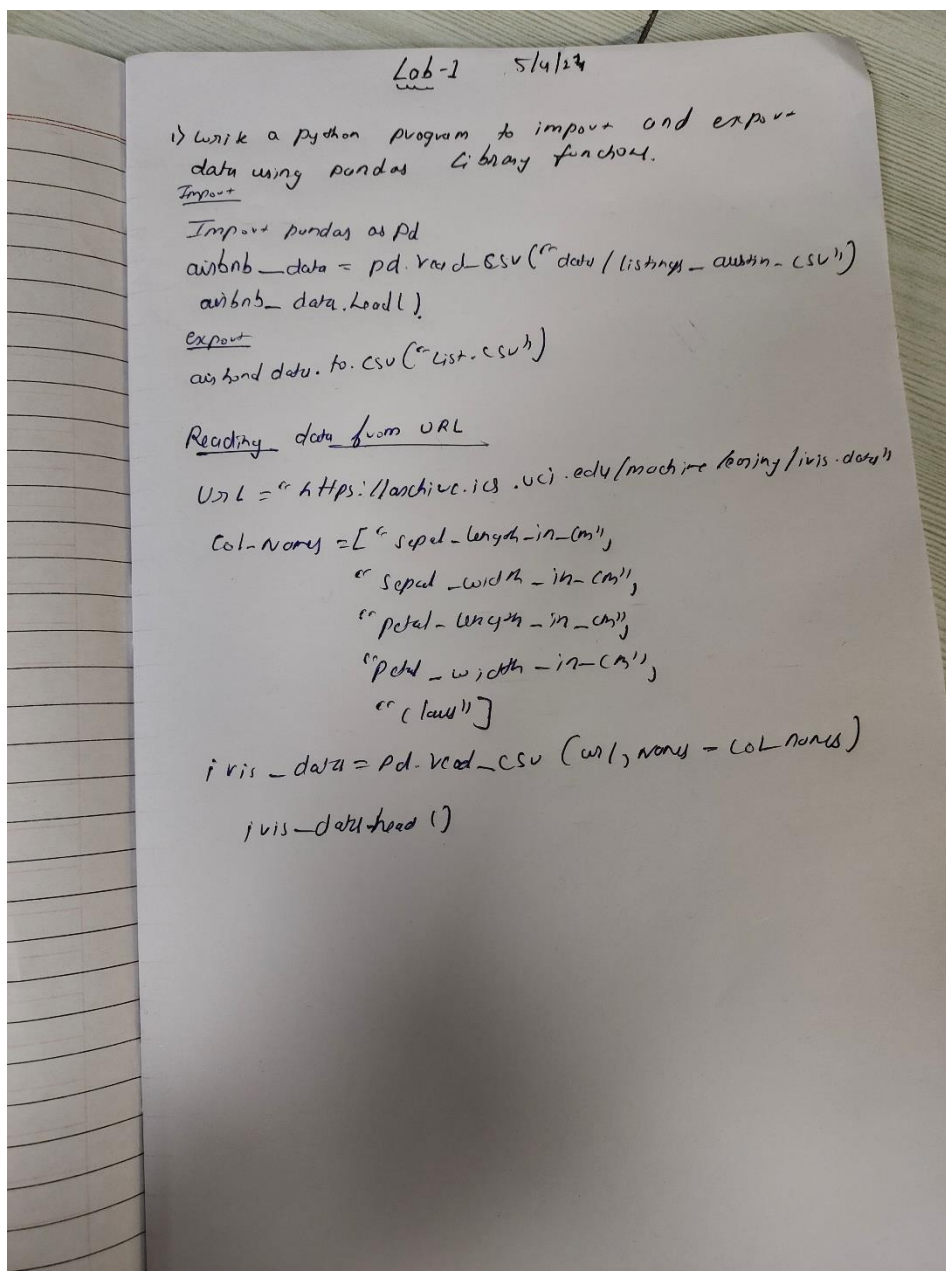 Lab-1 5/4/24
1) Write a python program to import and export
data using pandas Library functions.
Import
Import pandas as pd
airbnb_data = pd.read_csv("data/listings_austin_csv")
airbnb_data.head()
export
airbnd data.to.csv("List.csv")
Reading data from URL
Url = "https://archive.ics.uci.edu/machine learing/iris.data"
Col-Names = ["sepal-length-in-cm",
"sepal-width-in-cm",
"petal-length-in-cm",
"petal-width-in-cm",
"class"]
iris_data = pd.read_csv (url, names = col names)
iris_data.head ()